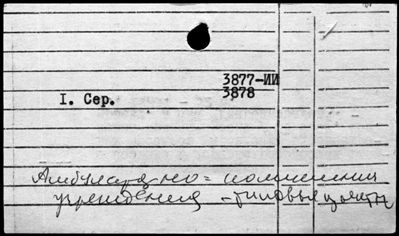 3877-ИИ
3878
I. Сер.
Амбулаторно = поликлинич
учреждения - типовые проекты